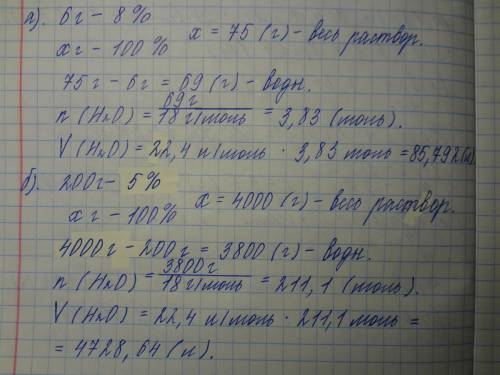 а). 6г - 8%
хг - 100% х = 75 (г) - весь раствор.
75г - 6г = 69 (г) - водн.
n (H₂O) = 69г / 18г/моль = 3,83 (моль).
V (H₂O) = 22,4 л/моль · 3,83 моль = 85,792 (л)
б). 200г - 5%
хг - 100% х = 4000 (г) - весь раствор.
4000г - 200г = 3800 (г) - водн.
n (H₂O) = 3800г / 18г/моль = 211,1 (моль).
V (H₂O) = 22,4 л/моль · 211,1 моль =
= 4728,64 (л).